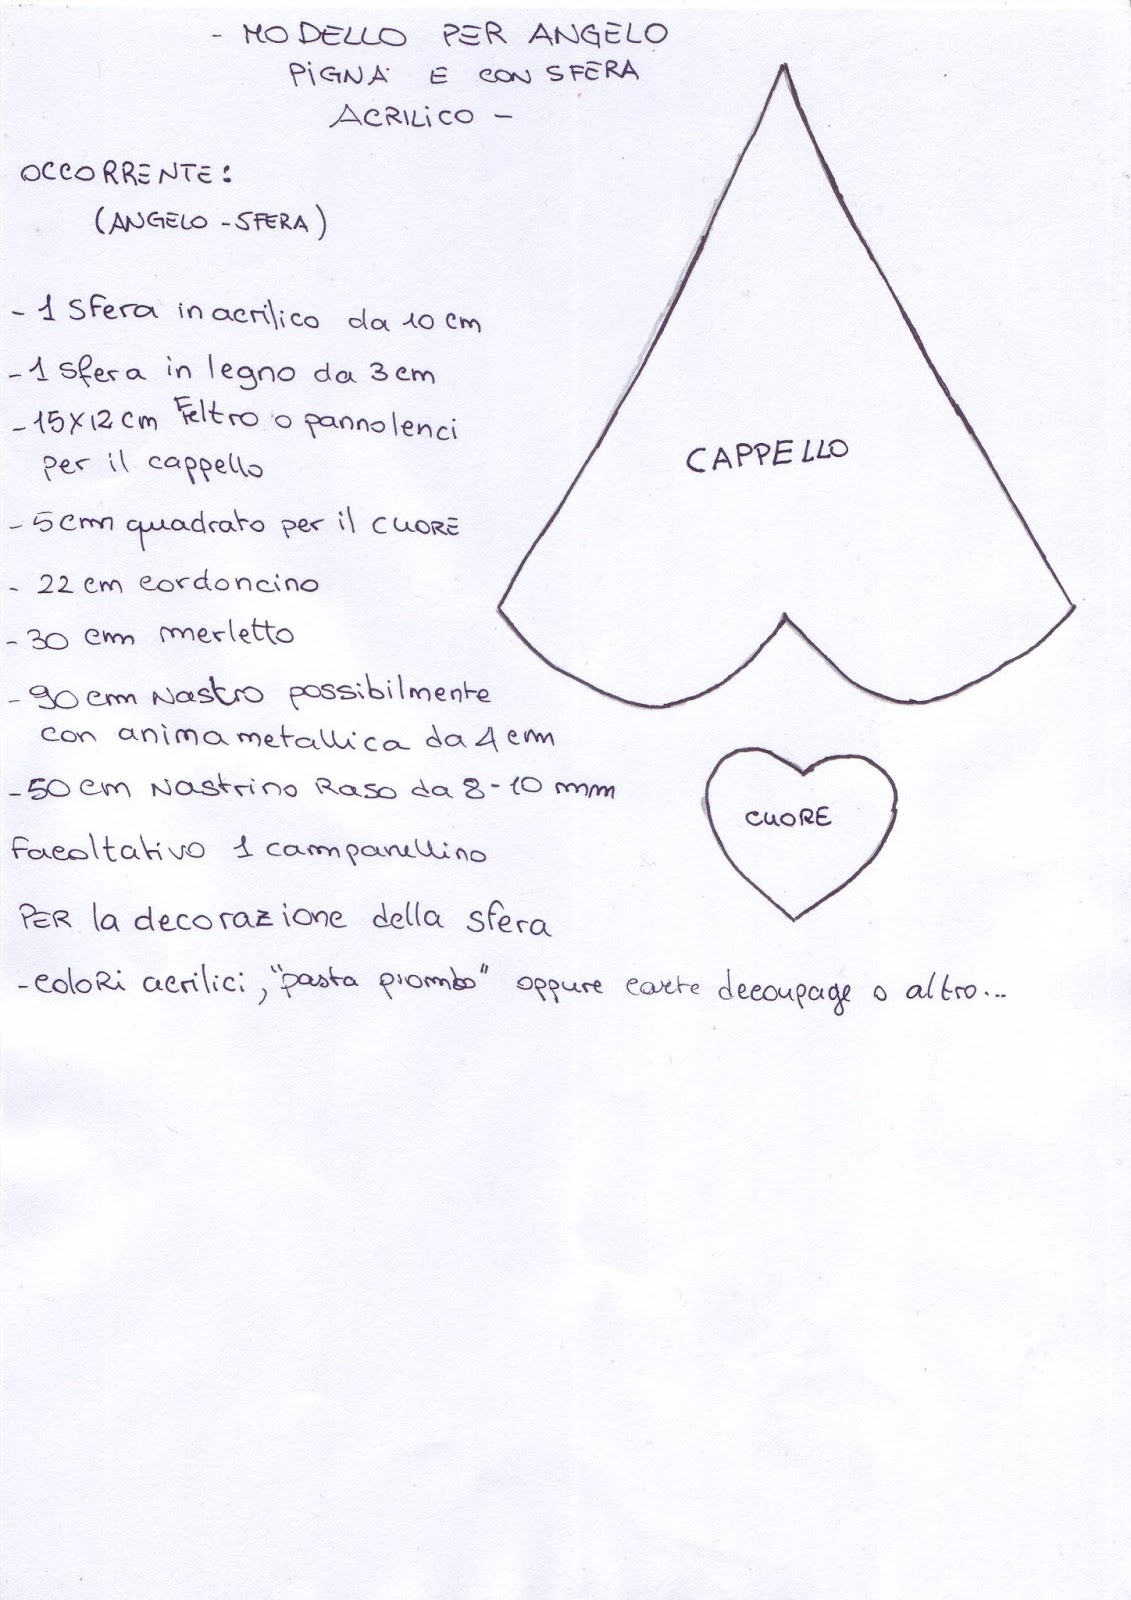 - MODELLO PER ANGELO
PIGNA E CON SFERA
ACRILICO -
OCCORRENTE:
(ANGELO - SFERA)
- 1 Sfera in acrilico da 10 cm
- 1 sfera in legno da 3 cm
- 15x12 cm Feltro o pannolenci
per il cappello
- 5 cm quadrato per il CUORE
- 22 cm cordoncino
- 30 cm merletto
- 90 cm Nastro possibilmente
con anima metallica da 4 cm
- 50 cm Nastrino Raso da 8-10 mm
facoltativo 1 campanellino
PER la decorazione della sfera
- coloRi acrilici, "pasta piombo" oppure carte decoupage o altro...
CAPPELLO
CUORE